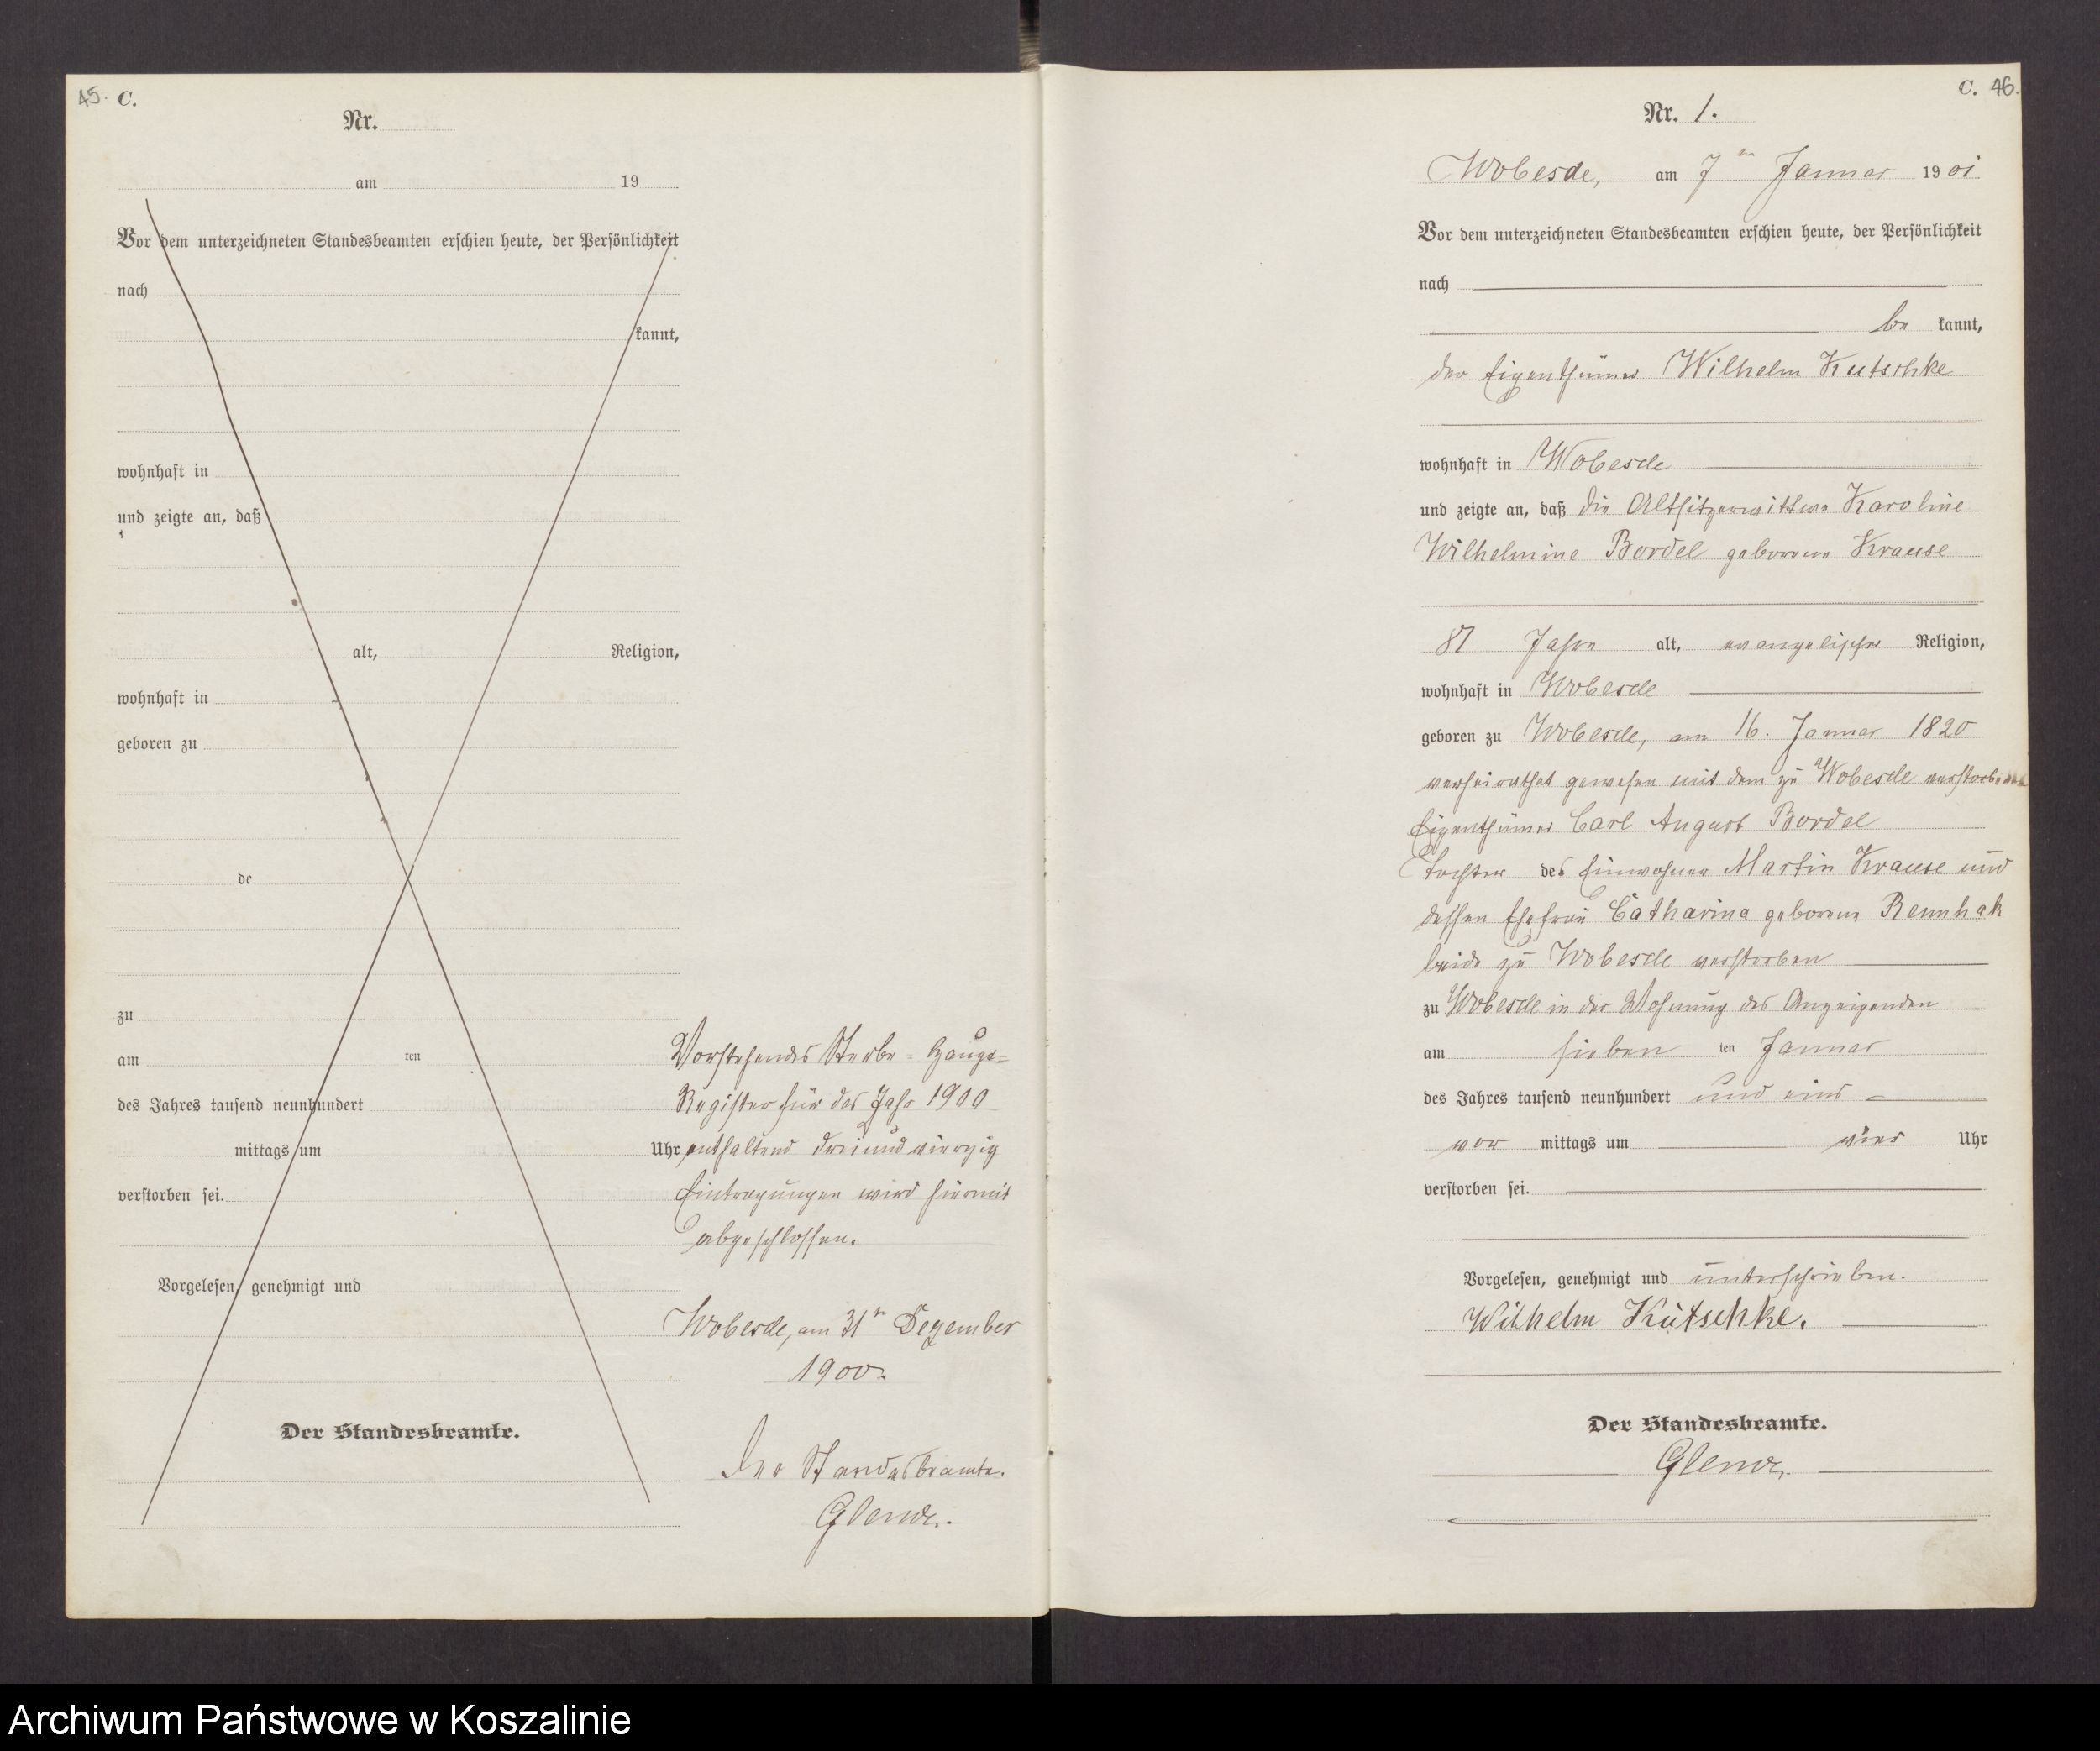 45. C.
Nr.
am 19
Vor dem unterzeichneten Standesbeamten erschien heute, der Persönlichkeit
nach
kannt,
wohnhaft in
und zeigte an, daß
alt, Religion,
wohnhaft in
geboren zu
de
zu
am ten
des Jahres tausend neunhundert
mittags um Uhr
verstorben sei.
Vorgelesen, genehmigt und
Der Standesbeamte.
Vorstehendes Sterbe-Haupt-
Register für das Jahr 1900
enthaltend dreiundvierzig
Eintragungen wird hiermit
abgeschlossen.
Wobesde, am 31ten Dezember
1900.
Der Standesbeamte.
C. 46.
Nr. 1.
Wobesde, am 7ten Januar 1901
Vor dem unterzeichneten Standesbeamten erschien heute, der Persönlichkeit
nach
be kannt,
der Eigenthümer Wilhelm Kutschke
wohnhaft in Wobesde
und zeigte an, daß die Altsitzerwittwe Karoline
Wilhelmine Bordel geborene Krause
81 Jahre alt, evangelischer Religion,
wohnhaft in Wobesde
geboren zu Wobesde, am 16. Januar 1820
verheirathet gewesen mit dem zu Wobesde verstorbenen
Eigenthümer Carl August Bordel
Tochter des Einwohner Martin Krause und
dessen Ehefrau Catharina geborene Rennhak
beide zu Wobesde verstorben
zu Wobesde in der Wohnung des Anzeigenden
am sieben ten Januar
des Jahres tausend neunhundert und eins
vor mittags um vier Uhr
verstorben sei.
Vorgelesen, genehmigt und unterschrieben.
Wilhelm Kutschke.
Der Standesbeamte.
Archiwum Państwowe w Koszalinie